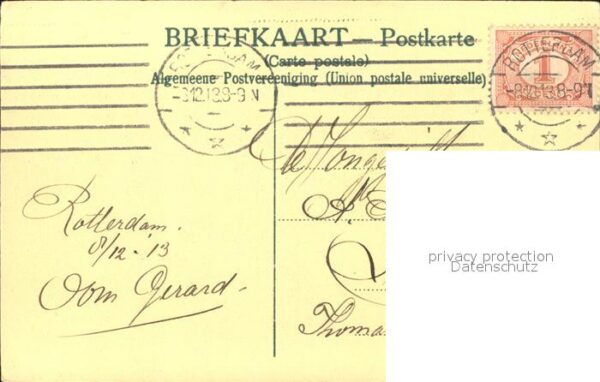 BRIEFKAART — Postkarte
(Carte postale)
Algemeene Postvereeniging (Union postale universelle)
ROTTERDAM
-8.12.13.8-9 N
ROTTERDAM
-8.12.13.8-9N
1
Rotterdam.
8/12 - 13
Oom Gerard
Thoma
privacy protection
Datenschutz